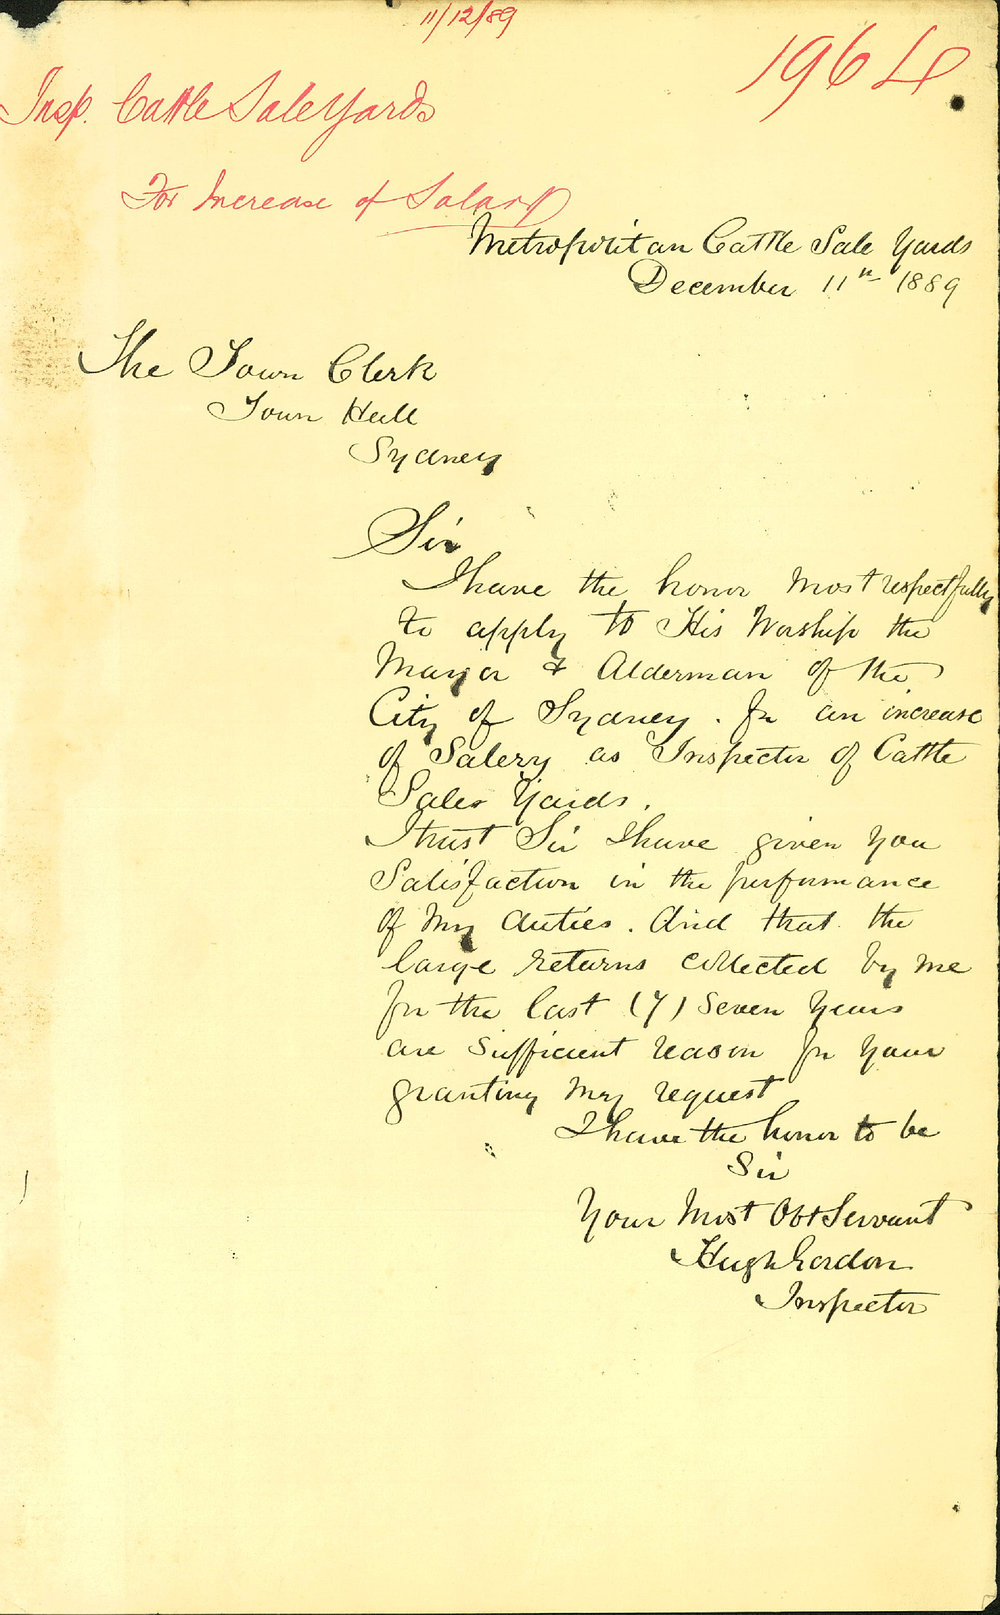 11/12/89
1964
Insp. Cattle Sale Yards
For Increase of Salary
Metropolitan Cattle Sale Yards
December 11th 1889
The Town Clerk
Town Hall
Sydney
Sir
I have the honor most respectfully
to apply to His Worship the
Mayor & Alderman of the
City of Sydney. For an increase
of Salery as Inspector of Cattle
Sales Yards.
I trust Sir I have given you
Satisfaction in the performance
of my duties. And that the
large returns collected by me
for the last (7) Seven Years
are sufficient reason for your
granting my request
I have the honor to be
Sir
Your Most Obt Servant
Hugh Gordon
Inspector